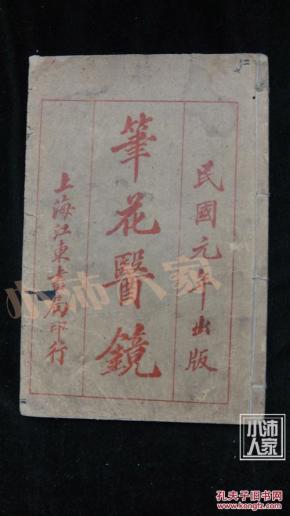 民國元年出版
筆花醫鏡
上海江東書局印行
小沛人家
小沛人家
孔夫子旧书网